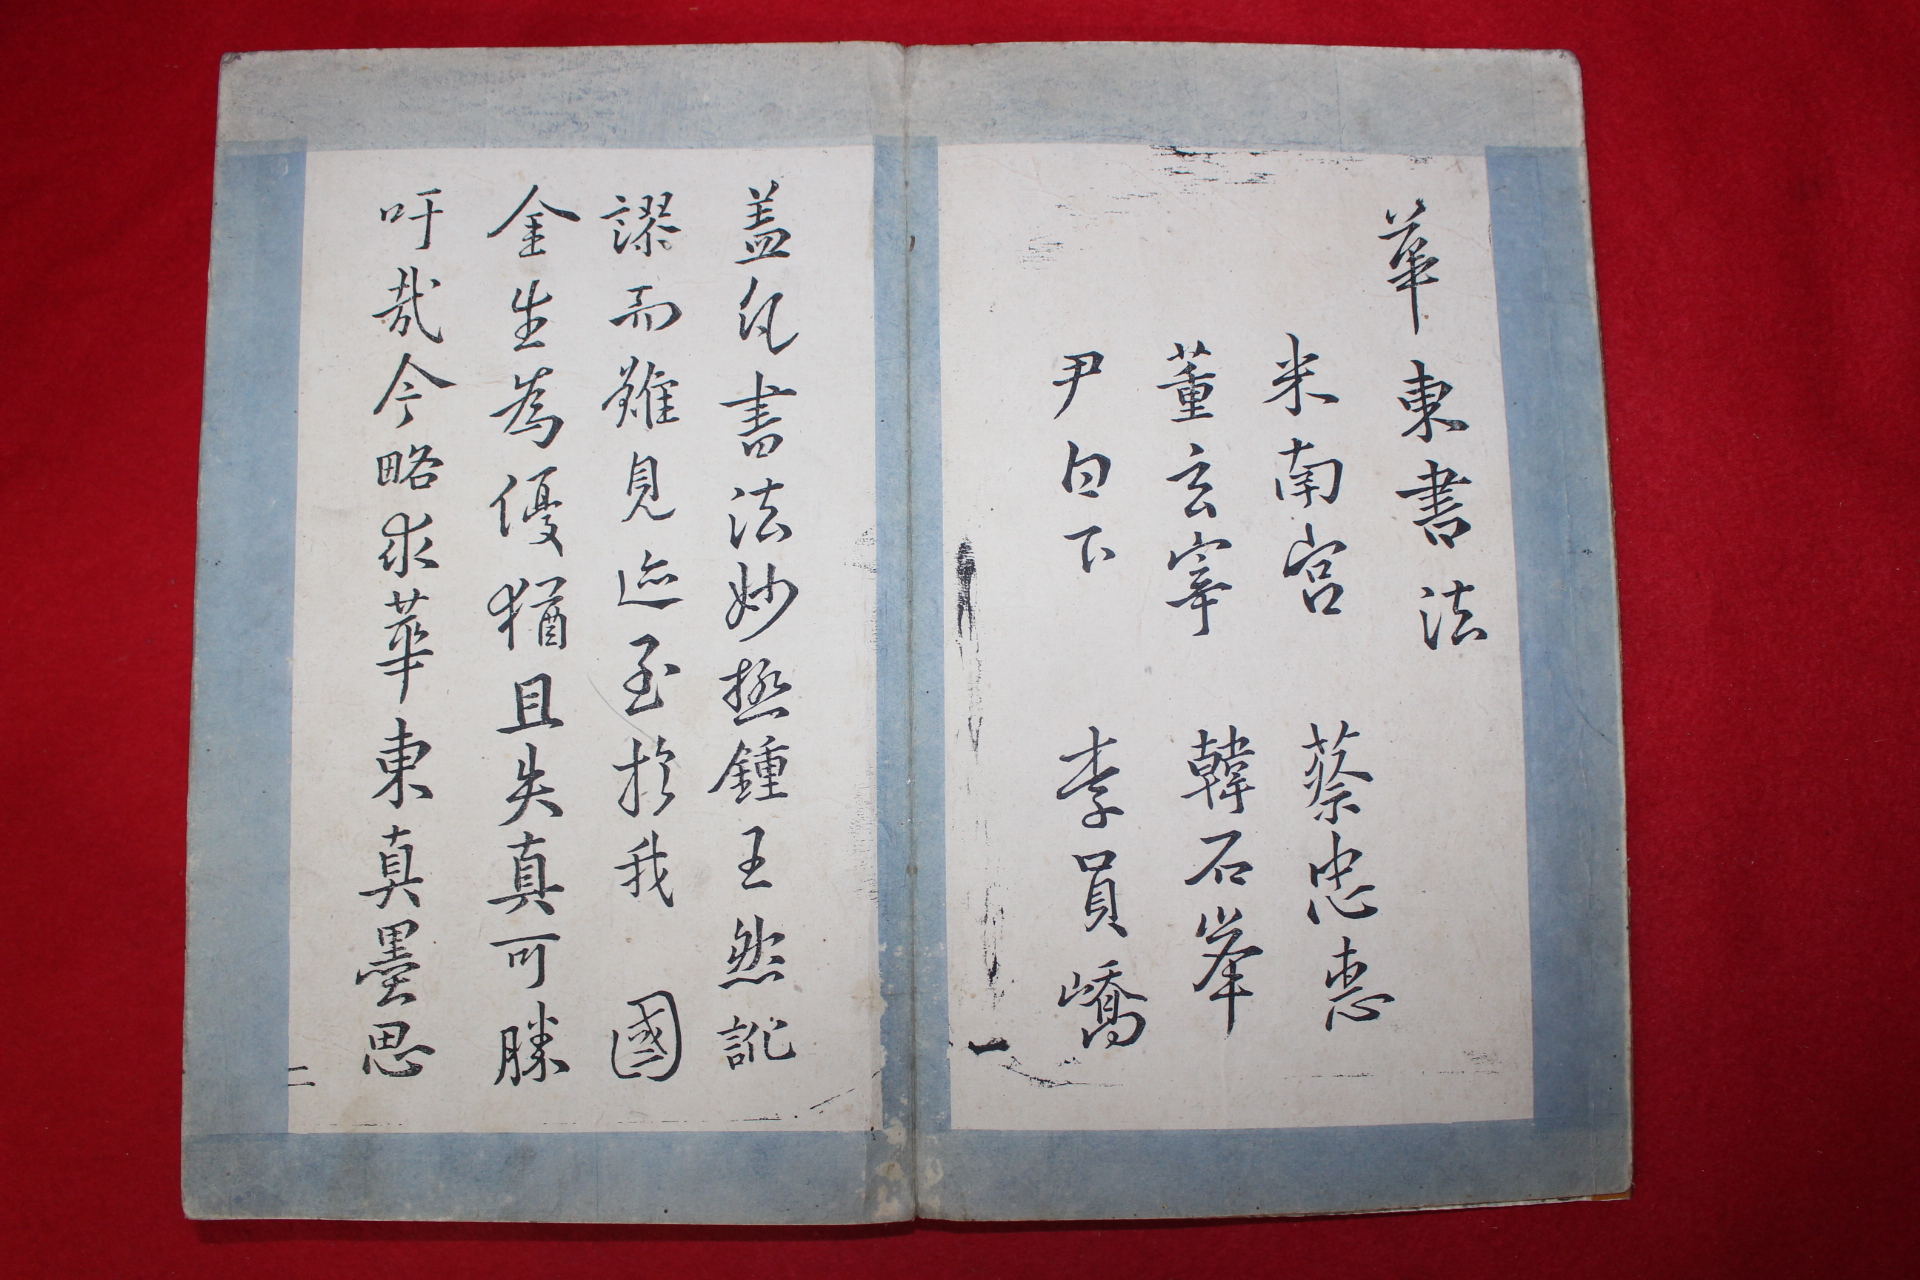 華東書法
米南宮 蔡忠惠
董玄宰 韓石峯
尹白下 李員嶠
一
盖凡書法妙極鍾王然訛
謬而難見迹至於我 國
金生為優猶且失真可勝
吁哉今略求華東真墨思
二